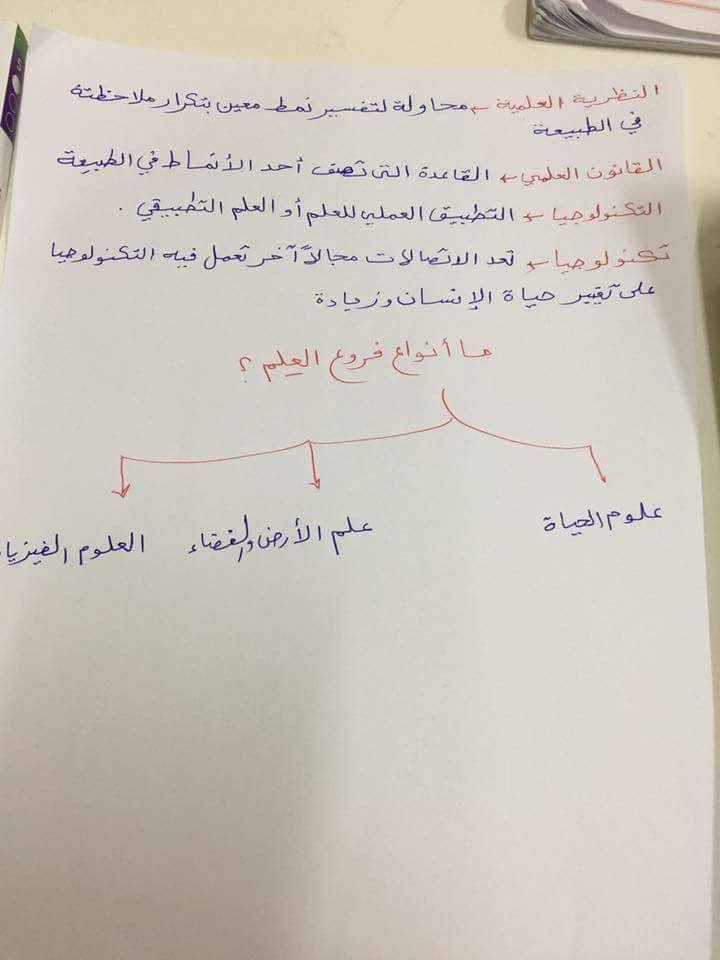 النظرية العلمية ← محاولة لتفسير نمط معين بتكرار ملاحظته
في الطبيعة
القانون العلمي ← القاعدة التى تصف أحد الأنماط في الطبيعة
التكنولوجيا ← التطبيق العملي للعلم أو العلم التطبيقي .
تكنولوجيا ← تعد الاتصالات مجالاً آخر تعمل فيه التكنولوجيا
على تغيير حياة الإنسان وزيادة
ما أنواع فروع العلم ؟
علوم الحياة
علم الأرض والفضاء
العلوم الفيزيا